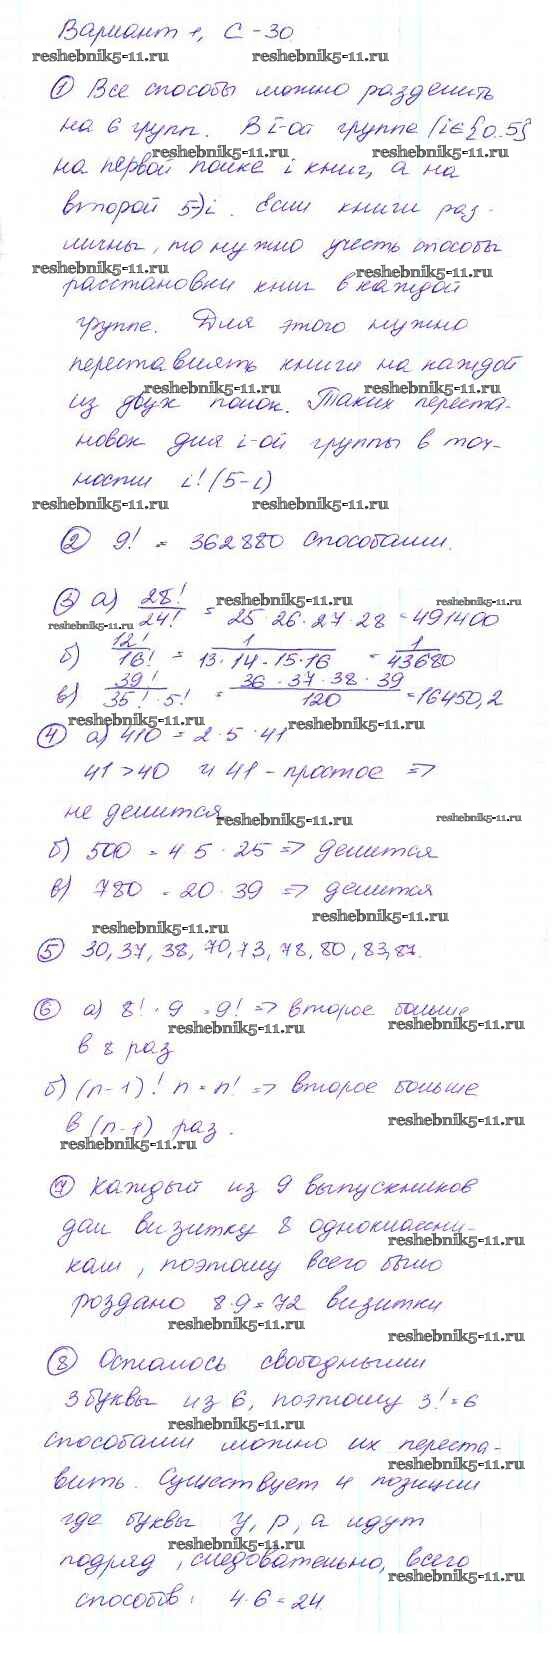 Вариант 1, С-30
reshebnik5-11.ru reshebnik5-11.ru
① Все способы можно разделить
на 6 групп. В i-ой группе (i∈{0.5}
reshebnik5-11.ru reshebnik5-11.ru
на первой полке i книг, а на
второй 5-)i. Если книги раз-
личны, то нужно учесть способы
reshebnik5-11.ru reshebnik5-11.ru
расстановки книг в каждой
группе. Для этого нужно
переставлять книги на каждой
reshebnik5-11.ru reshebnik5-11.ru
из двух полок. Таких переста-
новок для i-ой группы в точ-
ности i! (5-i)
reshebnik5-11.ru reshebnik5-11.ru
② 9! = 362880 способами.
③ а) 28!/24! = 25·26·27·28 = 491400
reshebnik5-11.ru reshebnik5-11.ru
reshebnik5-11.ru
б) 12!/16! = 1/13·14·15·16 = 1/43680
в) 39!/35!·5! = 36·37·38·39/120 = 16450,2
reshebnik5-11.ru reshebnik5-11.ru
④ а) 410 = 2·5·41
41>40 и 41 - простое =>
не делится
reshebnik5-11.ru reshebnik5-11.ru
б) 500 = 4 5 · 25 => делится
в) 780 = 20·39 => делится
reshebnik5-11.ru reshebnik5-11.ru
⑤ 30, 37, 38, 70, 73, 78, 80, 83, 87.
⑥ а) 8! · 9 = 9! => второе больше
reshebnik5-11.ru reshebnik5-11.ru
в 8 раз
б) (n-1)! n = n! => второе больше
в (n-1) раз.
reshebnik5-11.ru reshebnik5-11.ru
⑦ Каждый из 9 выпускников
дал визитку 8 однокласcни-
reshebnik5-11.ru reshebnik5-11.ru
кам, поэтому всего было
роздано 8·9=72 визитки
reshebnik5-11.ru reshebnik5-11.ru
⑧ Осталось свободными
3 буквы из 6, поэтому 3!=6
reshebnik5-11.ru
способами можно их переста-
reshebnik5-11.ru
вить. Существует 4 позиции
где буквы у, р, а идут
reshebnik5-11.ru
подряд, следовательно, всего
reshebnik5-11.ru
способов: 4·6=24.